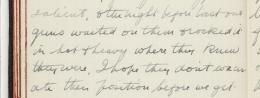 salient, & the night before last our
guns waited on them & rocked it
in hot & heavy where they knew
they were, I hope they don't evacu
ate their position before we get